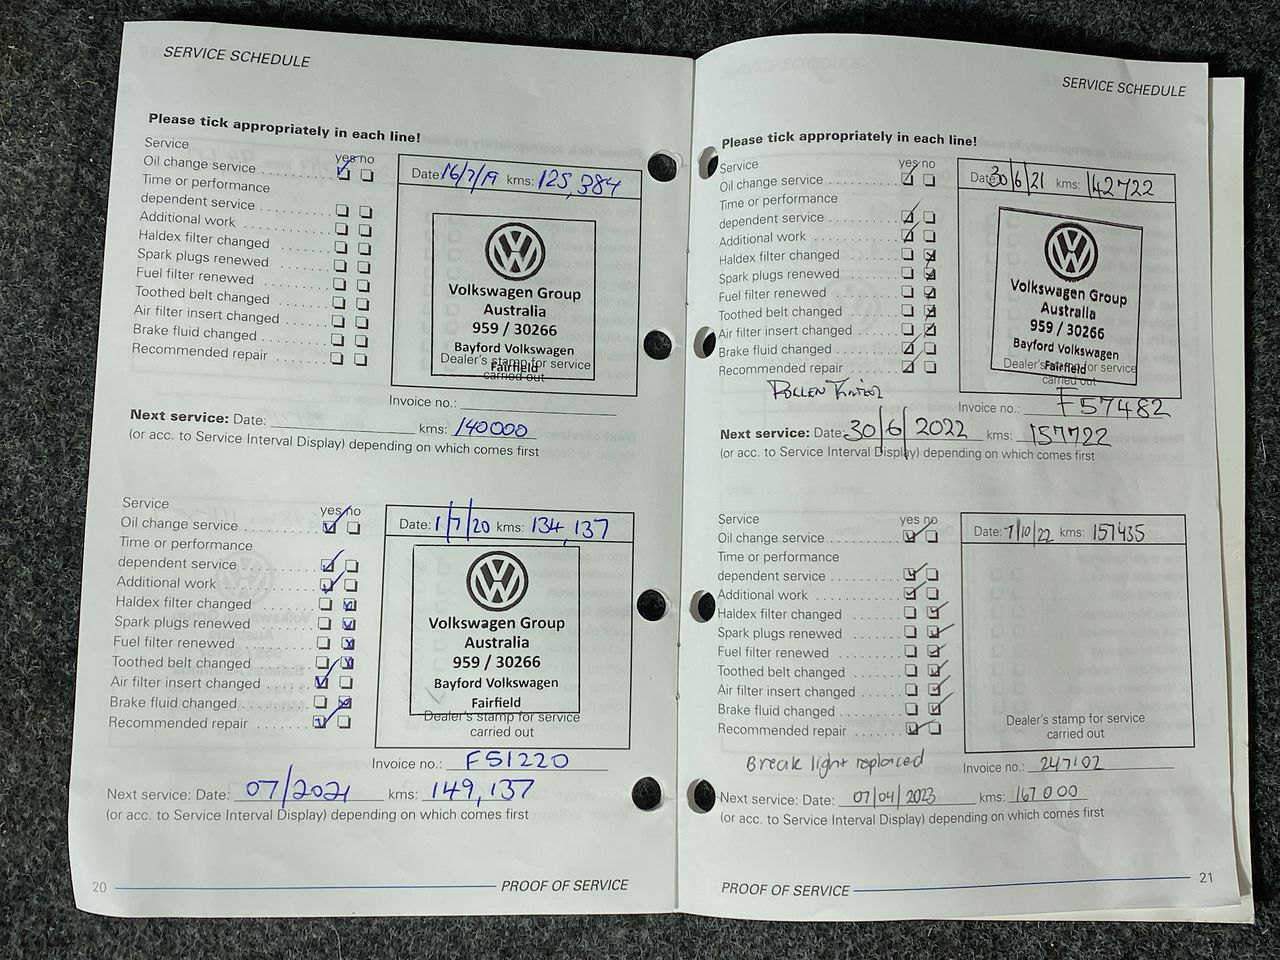 SERVICE SCHEDULE
Please tick appropriately in each line!
Service
yes no
Oil change service
Time or performance
dependent service
Additional work
Haldex filter changed
Spark plugs renewed
Fuel filter renewed
Toothed belt changed
Air filter insert changed
Brake fluid changed
Recommended repair
Date: 16/7/19 kms: 125,384
Volkswagen Group
Australia
959 / 30266
Bayford Volkswagen
Fairfield
Dealer's stamp for service
carried out
Invoice no.:
Next service: Date: kms: 140000
(or acc. to Service Interval Display) depending on which comes first
Service
yes no
Oil change service
Time or performance
dependent service
Additional work
Haldex filter changed
Spark plugs renewed
Fuel filter renewed
Toothed belt changed
Air filter insert changed
Brake fluid changed
Recommended repair
Date: 1/7/20 kms: 134,137
Volkswagen Group
Australia
959 / 30266
Bayford Volkswagen
Fairfield
Dealer's stamp for service
carried out
Invoice no.: F51220
Next service: Date: 07/2021 kms: 149,137
(or acc. to Service Interval Display) depending on which comes first
20 PROOF OF SERVICE
SERVICE SCHEDULE
Please tick appropriately in each line!
Service
yes no
Oil change service
Time or performance
dependent service
Additional work
Haldex filter changed
Spark plugs renewed
Fuel filter renewed
Toothed belt changed
Air filter insert changed
Brake fluid changed
Recommended repair
POLLEN FILTER
Date: 30/6/21 kms: 142722
Volkswagen Group
Australia
959 / 30266
Bayford Volkswagen
Fairfield
Dealer's stamp for service
carried out
Invoice no.: F57482
Next service: Date: 30/6/2022 kms: 157722
(or acc. to Service Interval Display) depending on which comes first
Service
yes no
Oil change service
Time or performance
dependent service
Additional work
Haldex filter changed
Spark plugs renewed
Fuel filter renewed
Toothed belt changed
Air filter insert changed
Brake fluid changed
Recommended repair
Break light replaced
Date: 7/10/22 kms: 157435
Dealer's stamp for service
carried out
Invoice no.: 247102
Next service: Date: 07/04/2023 kms: 167000
(or acc. to Service Interval Display) depending on which comes first
PROOF OF SERVICE 21